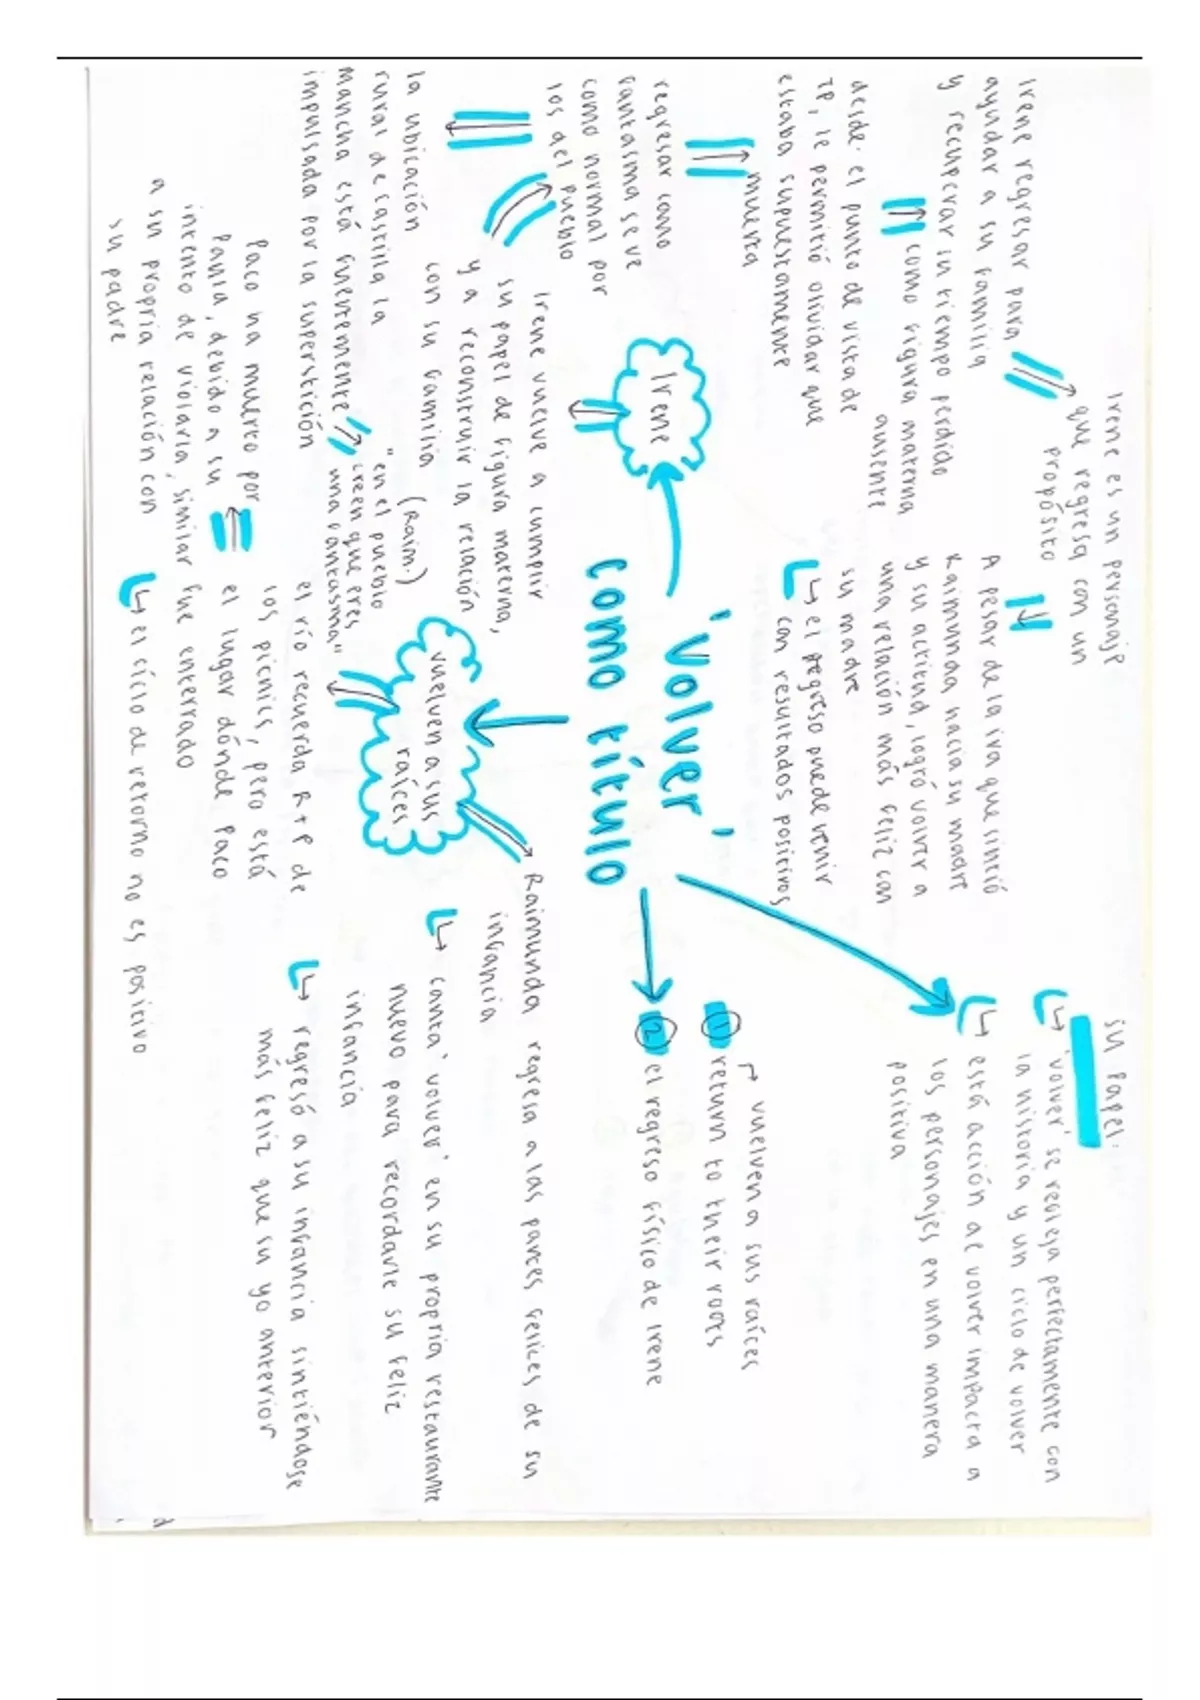 'Volver'
como título
Irene es un personaje
que regresa con un
propósito
Irene regresar para
ayudar a su familia
y recuperar su tiempo perdido
como figura materna
ausente
desde el punto de vista de
TP, le permitió olvidar que
estaba supuestamente
muerta
regresar como
fantasma se ve
como normal por
los del pueblo
la ubicación
rural de castilla la
mancha está fuertemente
impulsada por la superstición
"en el pueblo
creen que eres
una fantasma"
(Raim.)
Irene
Irene vuelve a cumplir
su papel de figura materna,
y a reconstruir la relación
con su familia
A pesar de la ira que sintió
Raimunda hacia su madre
y su actitud, logró volver a
una relación más feliz con
su madre
el regreso puede venir
con resultados positivos
su papel:
'volver' se refleja perfectamente con
la historia y un ciclo de volver
está acción de volver impacta a
los personajes en una manera
positiva
vuelven a sus raíces
1 return to their roots
2 el regreso físico de Irene
vuelven a sus
raíces
Raimunda regresa a las partes felices de su
infancia
canta 'volver' en su propria restaurante
nuevo para recordarle su feliz
infancia
regresó a su infancia sintiéndose
más feliz que su yo anterior
el río recuerda R+P de
los picnics, pero está
el lugar dónde Paco
fue enterrado
Paco ha muerto por
Paula, debido a su
intento de violarla, similar
a su propria relación con
su padre
el ciclo de retorno no es positivo